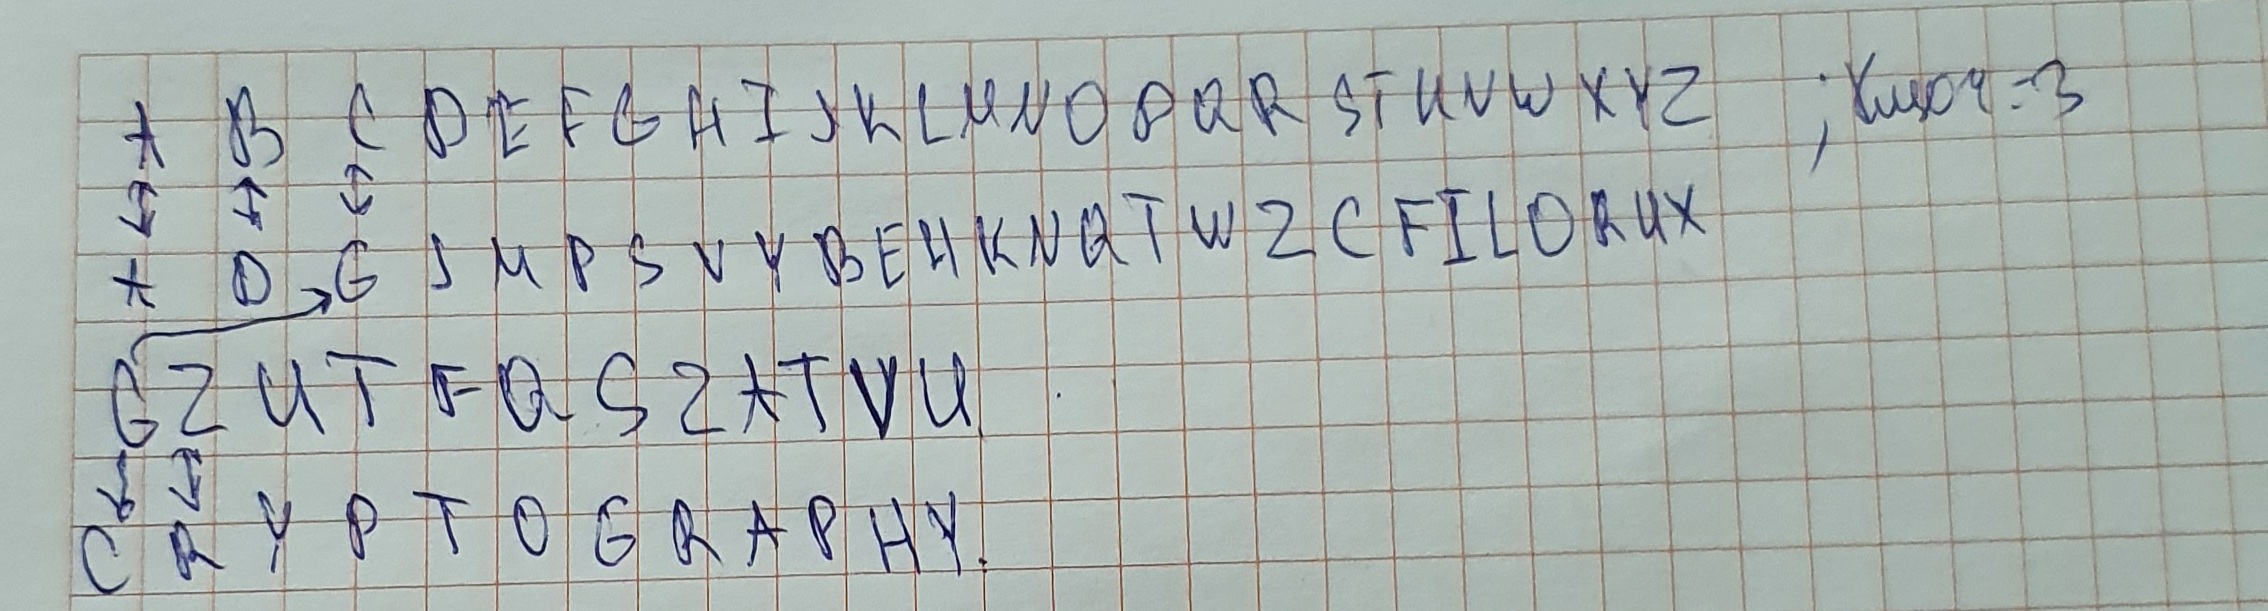 A B C D E F G H I J K L M N O P Q R S T U V W X Y Z ; Ключ = 3
A D G J M P S V Y B E H K N Q T W Z C F I L O R U X
G Z U T F Q S Z A T V U
C R Y P T O G R A P H Y.